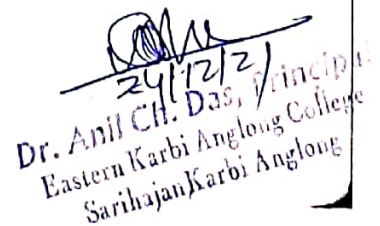 24/12/21
Dr. Anil Ch. Das, Principal
Eastern Karbi Anglong College
Sarihajan, Karbi Anglong